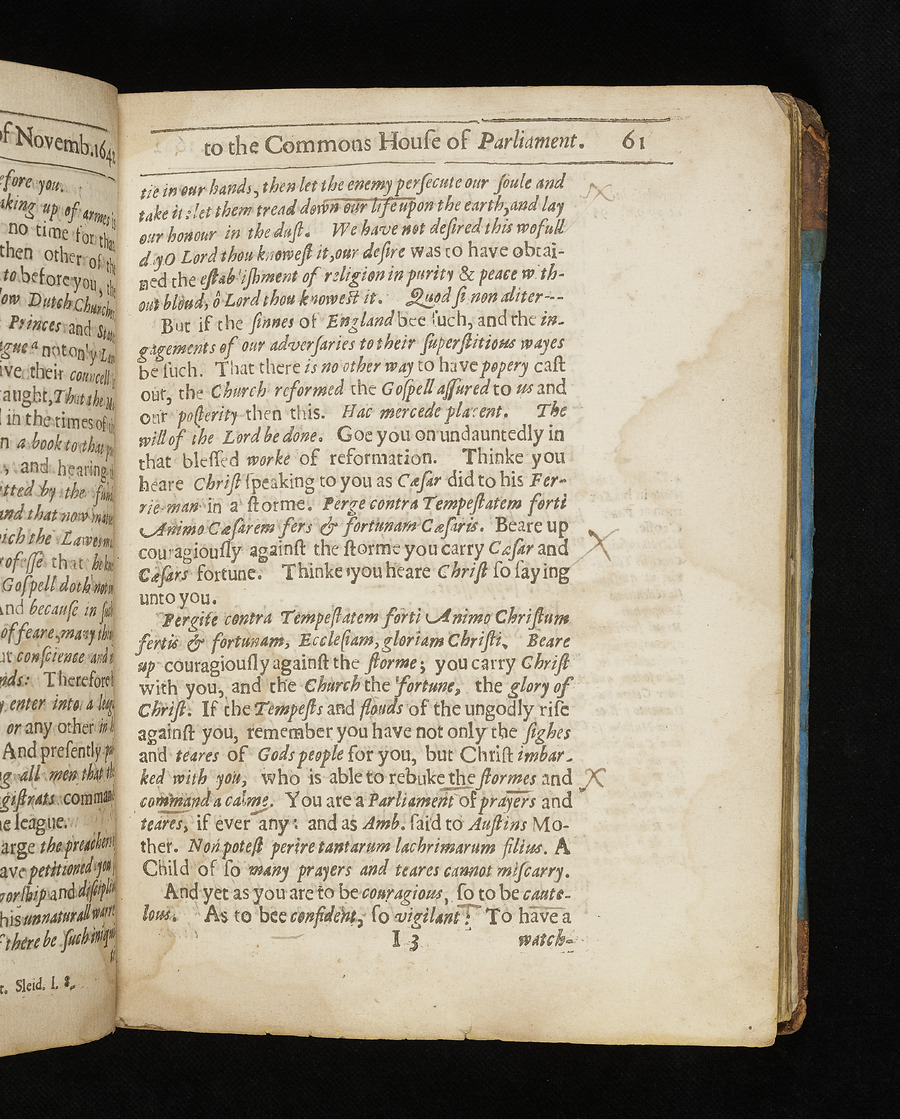 of Novemb. 1642
efore you.
aking up of armes is
no time for that
then other of the
to before you, the
low Dutch Churches
Princes and
ague a not only
ive their councell
aught, That the
l in the times of
n a book to that
, and hearing
itted by the
and that now
hich the Lawes
rofeſſe that he
Goſpell doth not
And becauſe in ſuch
of feare, many
ut conſcience and
nds: Therefore
y enter into a
or any other
And preſently
ng all men that
giſtrats command
he league.
arge the preachers
ave petitioned you
worſhip and
his unnaturall warre
f there be ſuch
t. Sleid. l. 8.
to the Commons Houſe of Parliament. 61
tie in our hands, then let the enemy perſecute our ſoule and
take it: let them tread down our life upon the earth, and lay
our honour in the duſt. We have not deſired this wofull
d y O Lord thou knoweſt it, our deſire was to have obtai-
ned the eſtab iſhment of religion in purity & peace w th-
out bloud, ô Lord thou knoweſt it. Quod ſi non aliter---
But if the ſinnes of England bee ſuch, and the in-
gagements of our adverſaries to their ſuperſtitious wayes
be ſuch. That there is no other way to have popery caſt
out, the Church reformed the Goſpell aſſured to us and
our poſterity then this. Hac mercede placent. The
will of the Lord be done. Goe you on undauntedly in
that bleſſed worke of reformation. Thinke you
heare Chriſt ſpeaking to you as Cæſar did to his Fer-
rie-man in a ſtorme. Perge contra Tempeſtatem forti
Animo Cæſarem fers & fortunam Cæſaris. Beare up
couragiouſly againſt the ſtorme you carry Cæſar and
Cæſars fortune. Thinke you heare Chriſt ſo ſaying
unto you.
Pergite contra Tempeſtatem forti Animo Chriſtum
fertis & fortunam, Eccleſiam, gloriam Chriſti. Beare
up couragiouſly againſt the ſtorme; you carry Chriſt
with you, and the Church the fortune, the glory of
Chriſt. If the Tempeſts and flouds of the ungodly riſe
againſt you, remember you have not only the ſighes
and teares of Gods people for you, but Chriſt imbar-
ked with you, who is able to rebuke the ſtormes and
command a calme. You are a Parliament of prayers and
teares, if ever any: and as Amb. ſaid to Auſtins Mo-
ther. Non poteſt perire tantarum lachrimarum filius. A
Child of ſo many prayers and teares cannot miſcarry.
And yet as you are to be couragious, ſo to be caute-
lous. As to bee confident, ſo vigilant: To have a
I 3 watch-